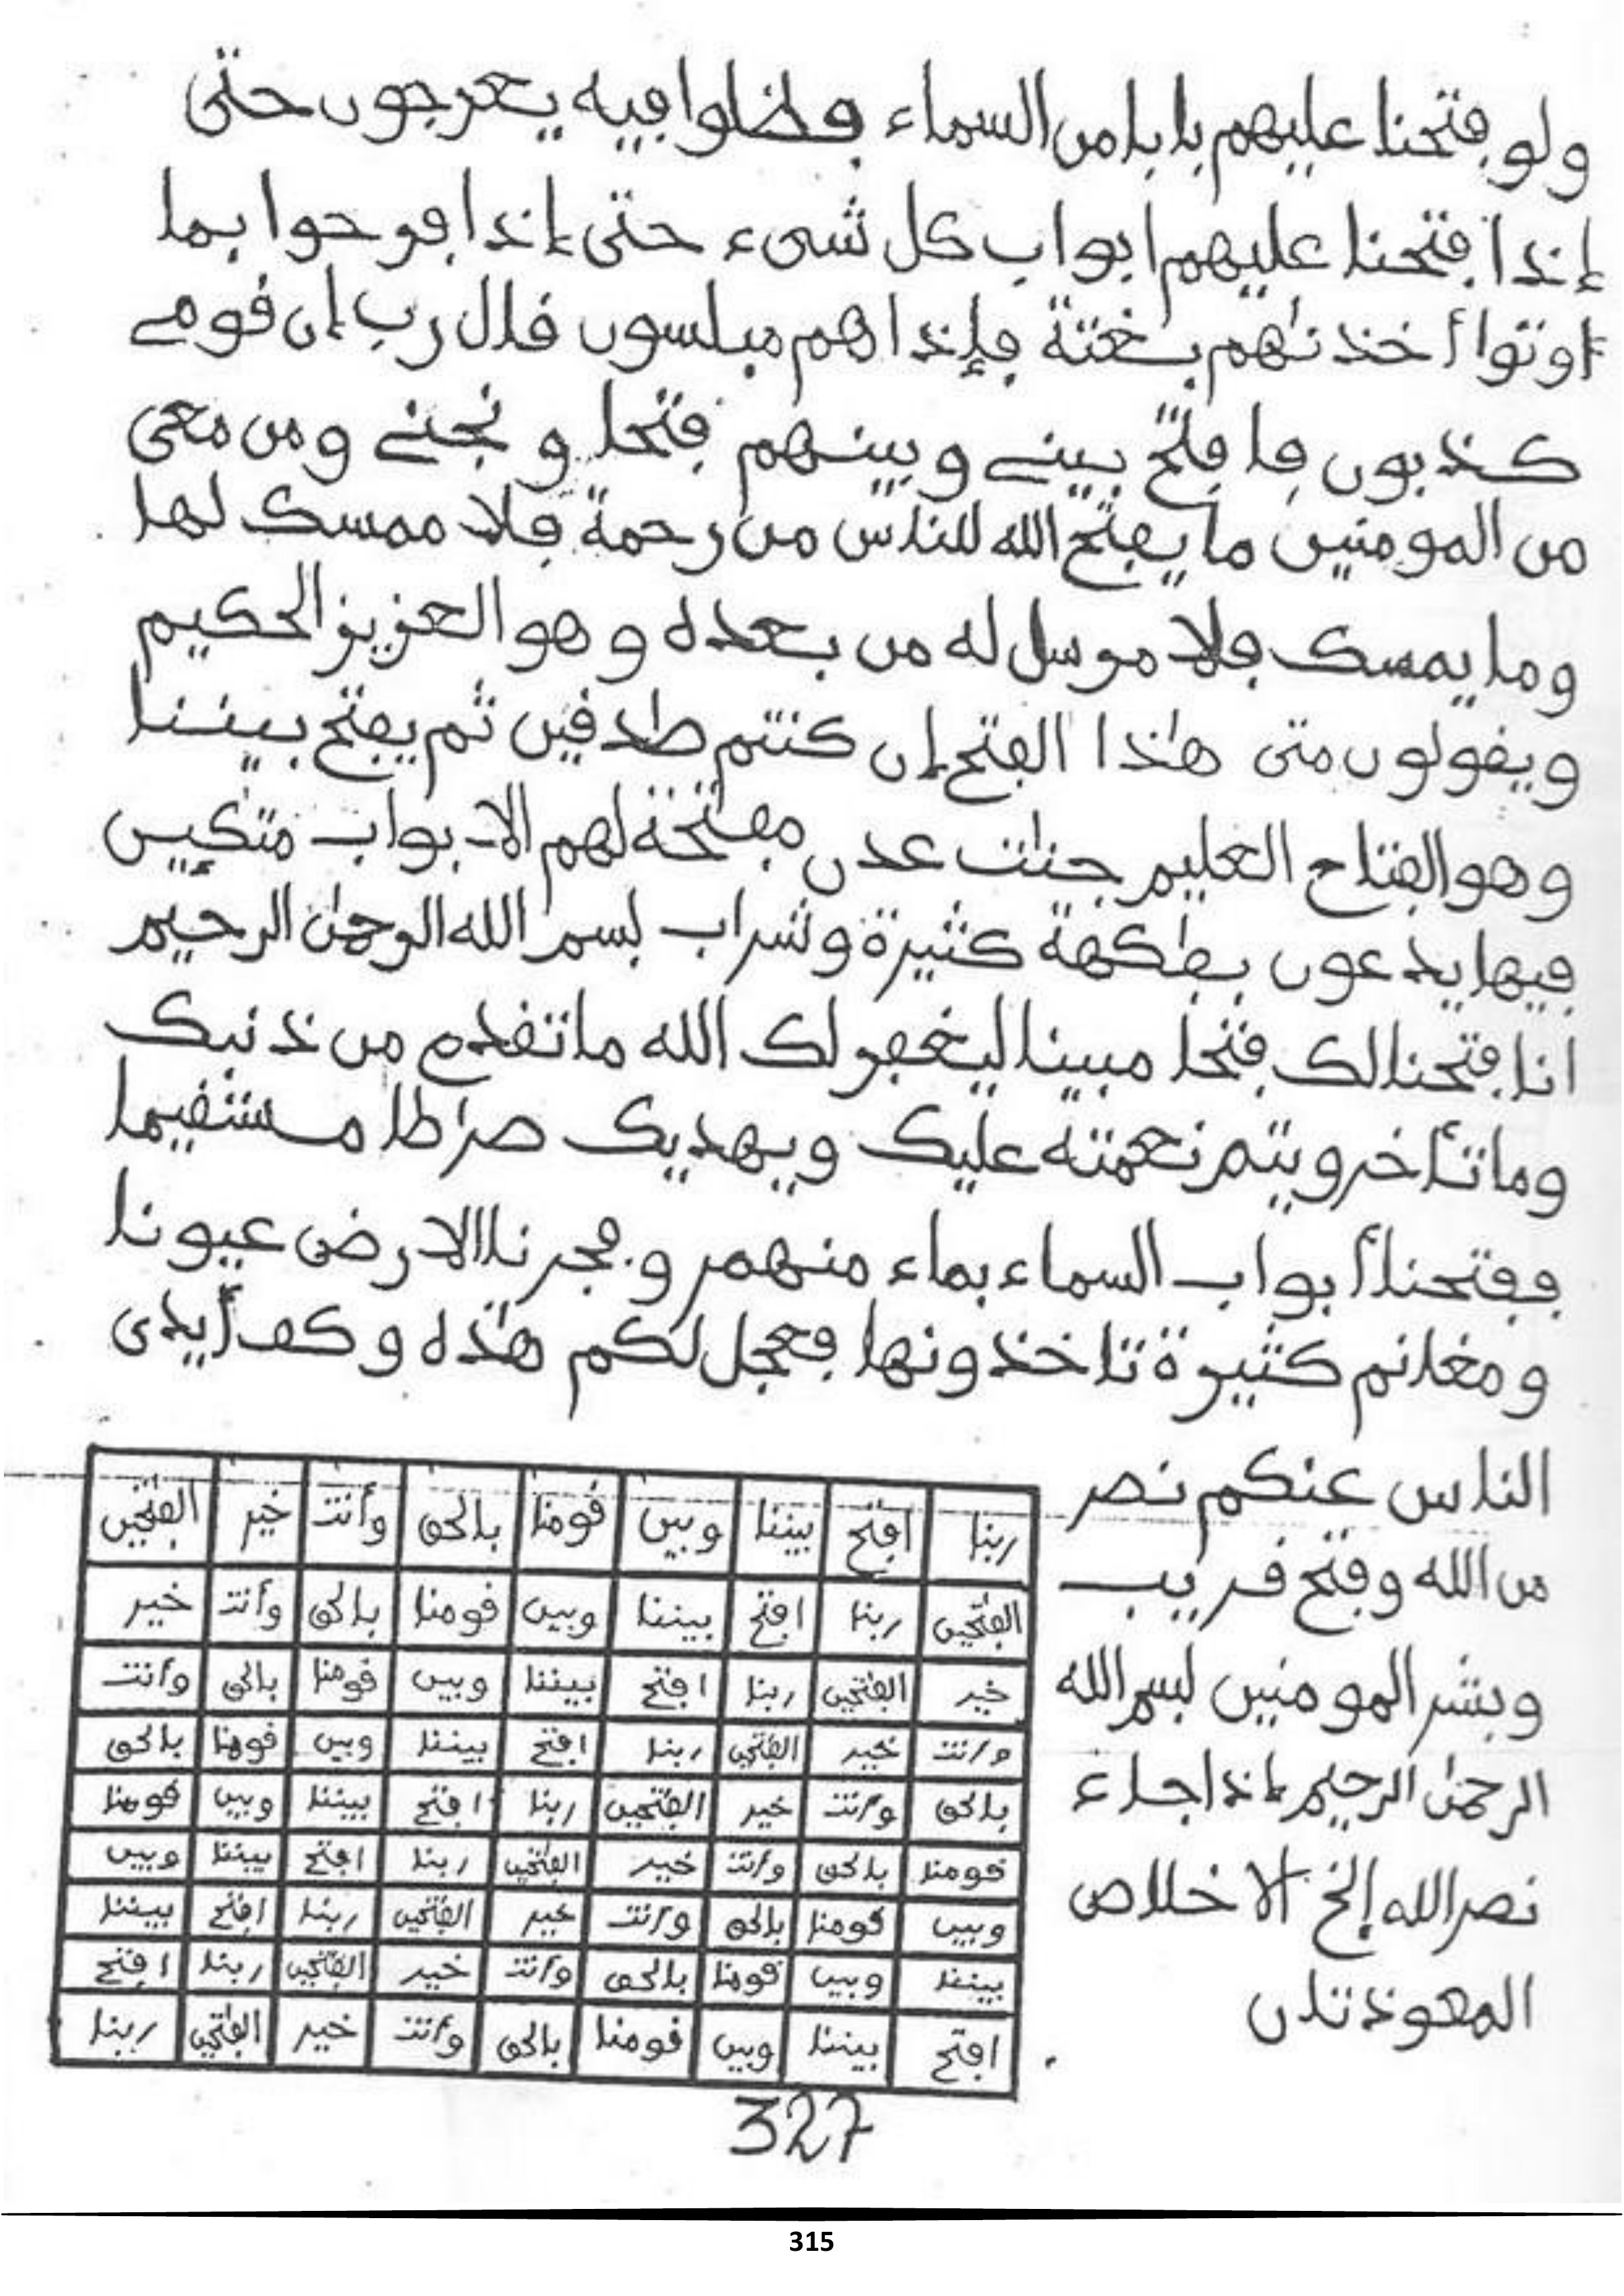 ولو فتحنا عليهم بابا من السماء فظلوا فيه يعرجون حتى
إذا فتحنا عليهم ابواب كل شيء حتى إذا فرحوا بما
اوتوا أخذنٰهم بغتة فإذا هم مبلسون قال رب إن قومے
كذبون فافتح بينے وبينهم فتحا ونجنے ومن معى
من المومنين ما يفتح الله للناس من رحمة فلا ممسك لها
وما يمسك فلا مرسل له من بعده وهو العزيز الحكيم
ويقولون متى هٰذا الفتح إن كنتم صٰدقين ثم يفتح بيننا
وهو الفتاح العليم جنٰت عدن مفتحة لهم الابواب متكٕين
فيها يدعون بفٰكهة كثيرة وشراب بسم الله الرحمٰن الرحيم
انا فتحنا لك فتحا مبينا ليغفر لك الله ما تقدم من ذنبك
وما تأخر ويتم نعمته عليك ويهديك صرٰطا مستقيما
ففتحنا أبواب السماء بماء منهمر وفجرنا الارض عيونا
ومغانم كثيرة تاخذونها فعجل لكم هٰذه وكف أيدى
الناس عنكم نصر
من الله وفتح قريب
وبشر المومنين بسم الله
الرحمٰن الرحيم إذا جاء
نصر الله إلخ الاخلاص
المعوذتان
ربنا افتح بيننا وبين قومنا بالحق وأنت خير الفٰتحين
الفٰتحين ربنا افتح بيننا وبين قومنا بالحق وأنت خير
خير الفٰتحين ربنا افتح بيننا وبين قومنا بالحق وأنت
وأنت خير الفٰتحين ربنا افتح بيننا وبين قومنا بالحق
بالحق وأنت خير الفٰتحين ربنا افتح بيننا وبين قومنا
قومنا بالحق وأنت خير الفٰتحين ربنا افتح بيننا وبين
وبين قومنا بالحق وأنت خير الفٰتحين ربنا افتح بيننا
بيننا وبين قومنا بالحق وأنت خير الفٰتحين ربنا افتح
افتح بيننا وبين قومنا بالحق وأنت خير الفٰتحين ربنا
327
315